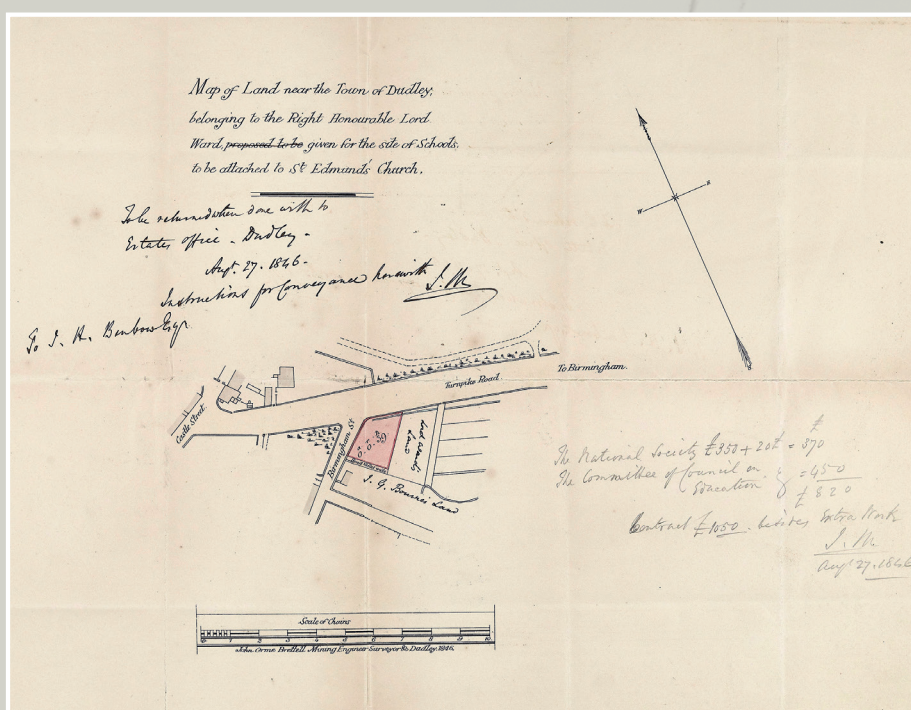 Map of Land near the Town of Dudley,
belonging to the Right Honourable Lord
Ward, proposed to be given for the site of Schools,
to be attached to St Edmunds' Church.
To be returned when done with to
Estates office - Dudley -
Augt. 27. 1846 -
Instructions for Conveyance herewith
J. M
To J. H. Benbow Esqr
W
Castle Street
Turnpike Road
To Birmingham.
Birmingham St
Lord Ward's
Land
J. G. Bournes Land
The National Society £350 + 20£ = 370
£
The Committee of Council on
Education
= 450
£820
Contract £1050. besides Extra Work
J. M.
Augt 27. 1846
Scale of Chains
1 2 3 4 5 6 7 8 9 10
John Orme Brettell, Mining Engineer Surveyor &c Dudley. 1846.